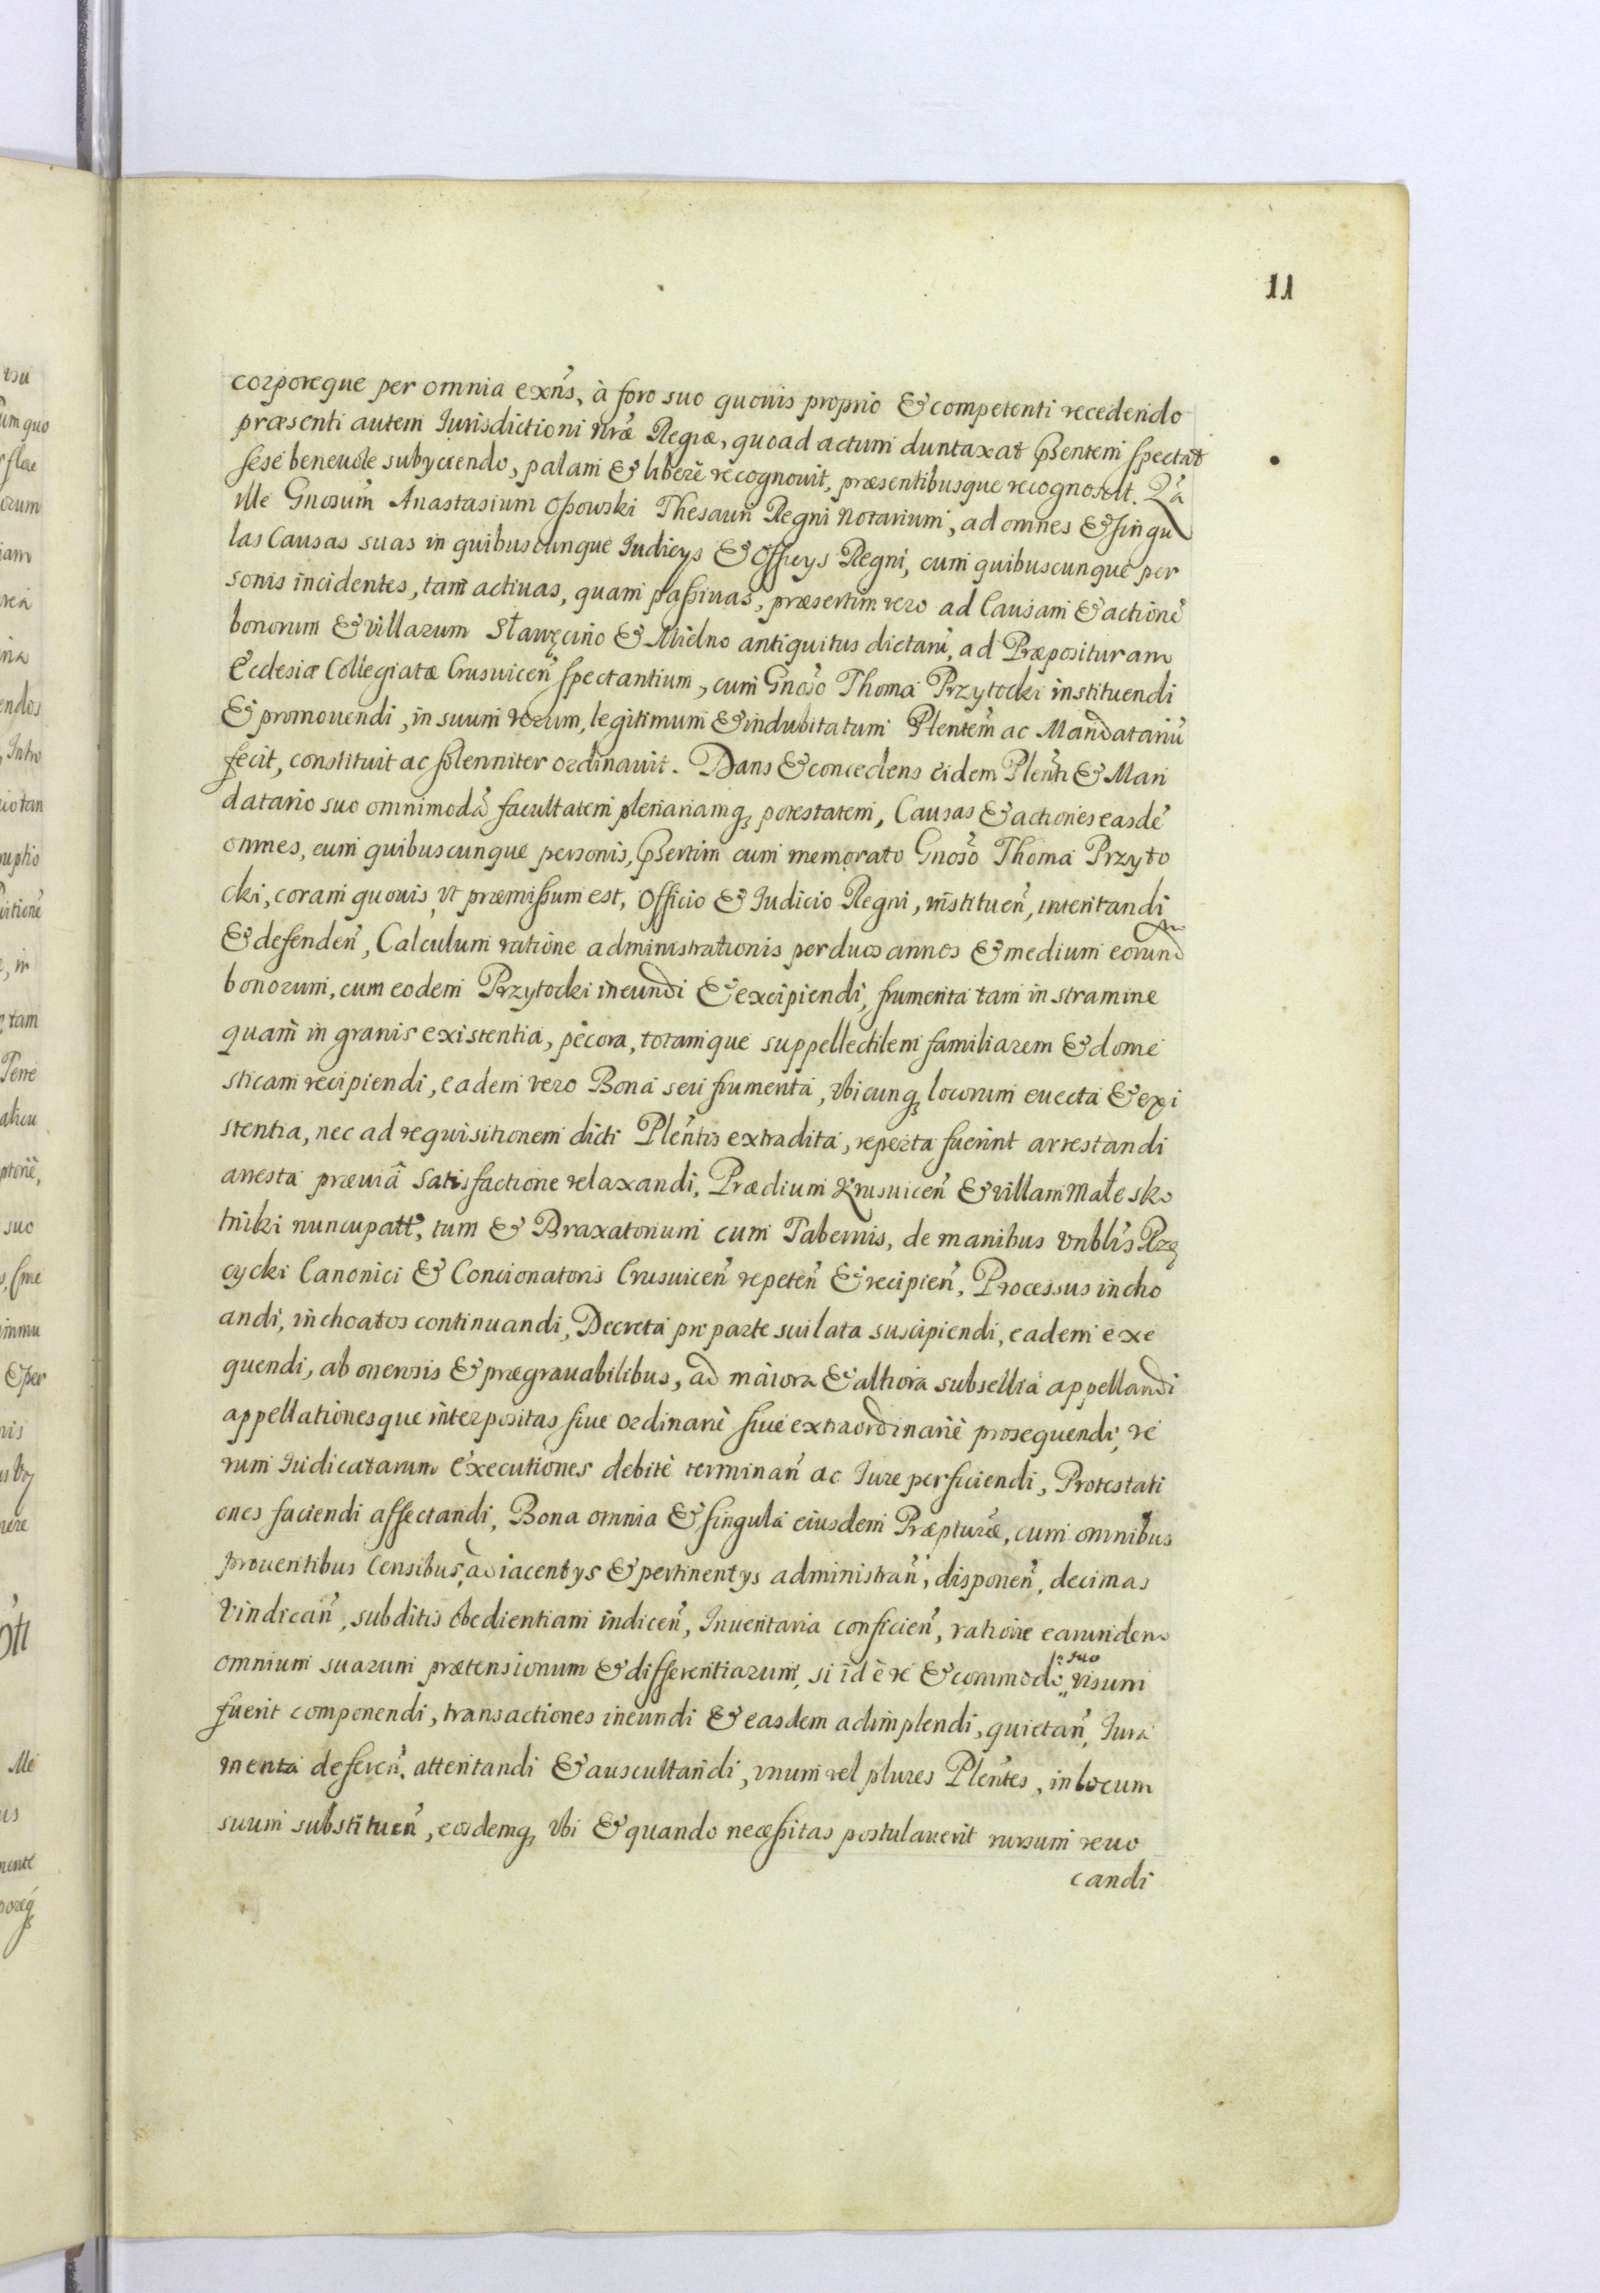 11
corporeque per omnia exñs, à foro suo quouis proprio & competenti recedendo
præsenti autem Iurisdictioni nr̃æ Regiæ, quoad actum duntaxat p̃sentem spectat
sese beneuole subyciendo, palam & liberè recognouit, præsentibusque recognoscit. Quia
ille Gnosum̃ Anastasium Ossowski Thesauri Regni Notarium, ad omnes & singu
las Causas suas in quibuscunque Iudicys & Officys Regni, cum quibuscunque per
sonis incidentes, tam actiuas, quam passiuas, præsertim vero ad Causam & actionẽ
bonorum & villarum Sławęcino & Mielno antiquitus dictarũ, ad Præposituram
Ecclesiæ Collegiatæ Crusuiceñ spectantium, cum Gnoso Thoma Przytocki instituendi
& promouendi, in suum verum, legitimum & indubitatum Plentem̃ ac Mandatariũ
fecit, constituit ac solenniter ordinauit. Dans & concedens eidem Pleñti & Man
datario suo omnimodã facultatem plenariamq̃ potestatem, Causas & actiones easdẽ
omnes, cum quibuscunque personis, p̃sertim cum memorato Gnoso Thoma Przyto
cki, coram quouis, vt præmissum est, Officio & Iudicio Regni, institueñ, intentandi
& defendeñ, Calculum ratione administrationis per duos annos & medium eorund
bonorum, cum eodem Przytocki ineundi & excipiendi, frumenta tam in stramine
quam in granis existentia, pecora, totamque suppellectilem familiarem & dome
sticam recipiendi, eadem vero Bona seu frumenta, vbicunq̃ locorum euecta & exi
stentia, nec ad requisitionem dicti Pleñtis extradita, reperta fuerint arrestandi
arresta præuiâ satisfactione relaxandi, Prædium Krusuiceñ & villam Małe sko
tniki nuncupatt, tum & Braxatorium cum Tabernis, de manibus Vnblis Rzę
cycki Canonici & Concionatoris Crusuiceñ repeteñ & recipieñ, Processus incho
andi, inchoatos continuandi, Decreta pro parte sui lata suscipiendi, eadem exe
quendi, ab onerosis & prægrauabilibus, ad maiora & altiora subsellia appellandi
appellationesque interpositas siue ordinariè siue extraordinariè prosequendi, re
rum Iudicatarum executiones debitè terminañ ac Iure perficiendi, Protestati
ones faciendi affectandi, Bona omnia & singula eiusdem Præpturæ, cum omnibus
prouentibus Censibus, adiacentys & pertinentys administrañ, disponeñ, decimas
vindicañ, subditis obedientiam indiceñ, Inuentaria conficieñ, ratione earundem
omnium suarum prætensionum & differentiarum, si id è re & commodo suo visum
fuerit componendi, transactiones ineundi & easdem adimplendi, quietañ, Iura
menta defereñ, attentandi & auscultandi, vnum vel plures Pleñtes, in locum
suum substitueñ, eosdemq̃ vbi & quando necessitas postulauerit rursum reuo
candi